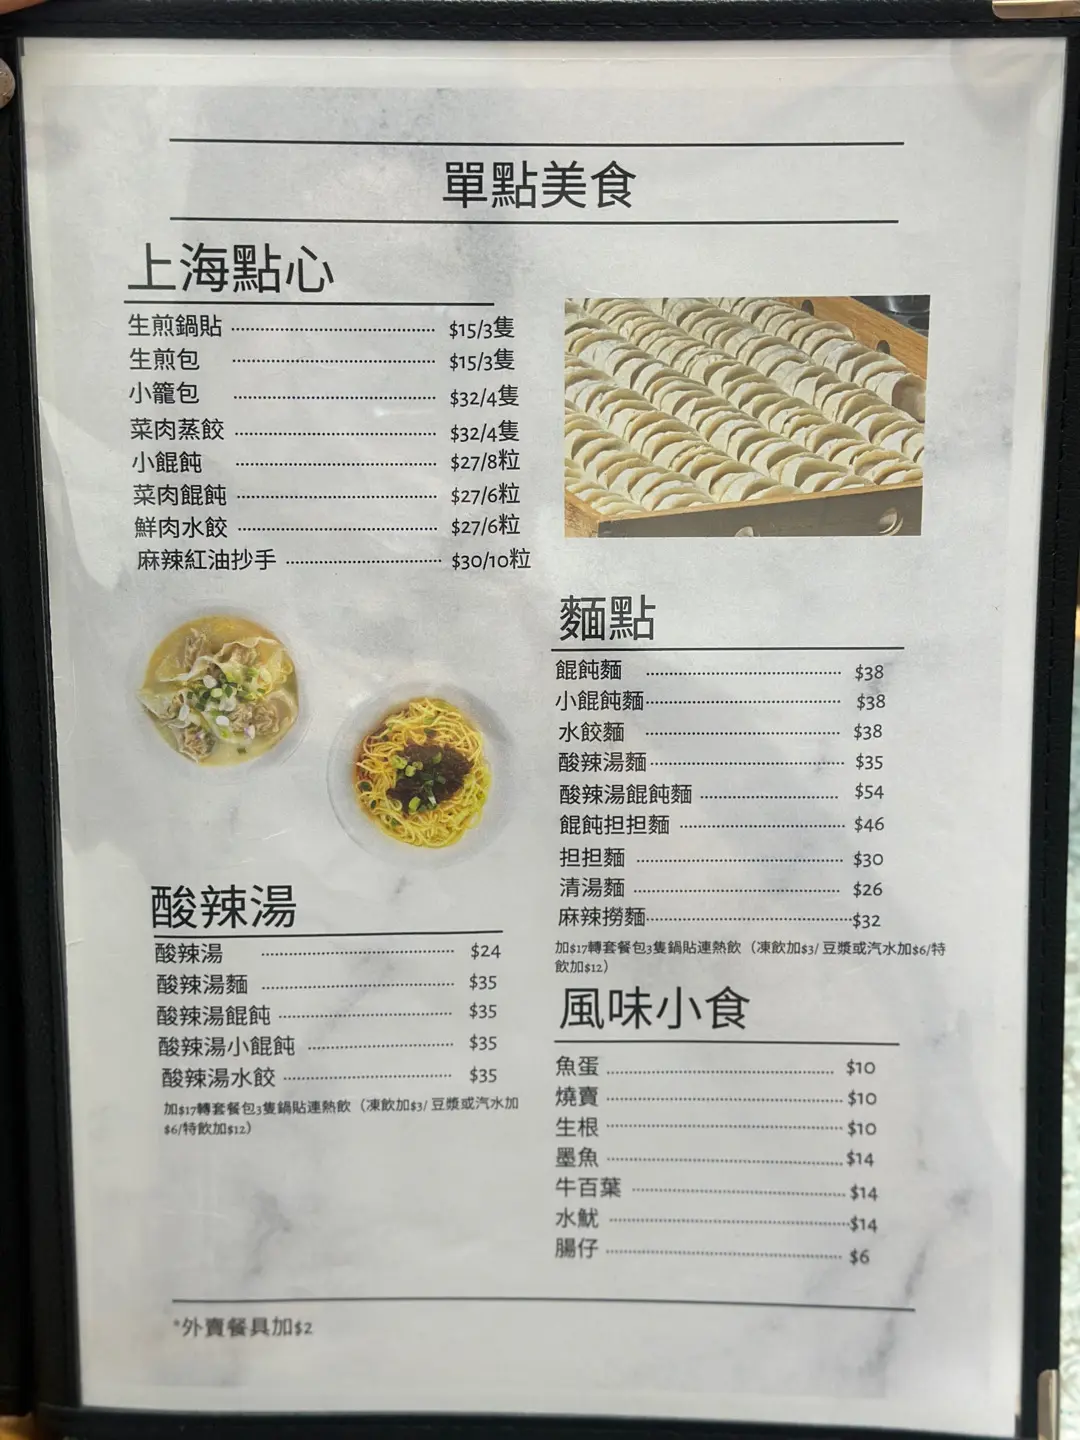 單點美食
上海點心
生煎鍋貼 $15/3隻
生煎包 $15/3隻
小籠包 $32/4隻
菜肉蒸餃 $32/4隻
小餛飩 $27/8粒
菜肉餛飩 $27/6粒
鮮肉水餃 $27/6粒
麻辣紅油抄手 $30/10粒
酸辣湯
酸辣湯 $24
酸辣湯麵 $35
酸辣湯餛飩 $35
酸辣湯小餛飩 $35
酸辣湯水餃 $35
加$17轉套餐包3隻鍋貼連熱飲（凍飲加$3/ 豆漿或汽水加
$6/特飲加$12）
麵點
餛飩麵 $38
小餛飩麵 $38
水餃麵 $38
酸辣湯麵 $35
酸辣湯餛飩麵 $54
餛飩担担麵 $46
担担麵 $30
清湯麵 $26
麻辣撈麵 $32
加$17轉套餐包3隻鍋貼連熱飲（凍飲加$3/ 豆漿或汽水加$6/特
飲加$12）
風味小食
魚蛋 $10
燒賣 $10
生根 $10
墨魚 $14
牛百葉 $14
水魷 $14
腸仔 $6
*外賣餐具加$2